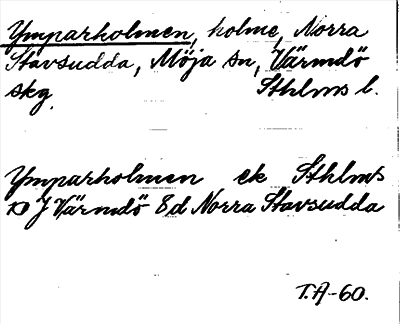 Ymparholmen, holme, Norra
Stavsudda, Möja sn, Värmdö
skg. Sthlms l.
Ymparholmen ek Sthlms
10 J Värmdö 8d Norra Stavsudda
T.A-60.